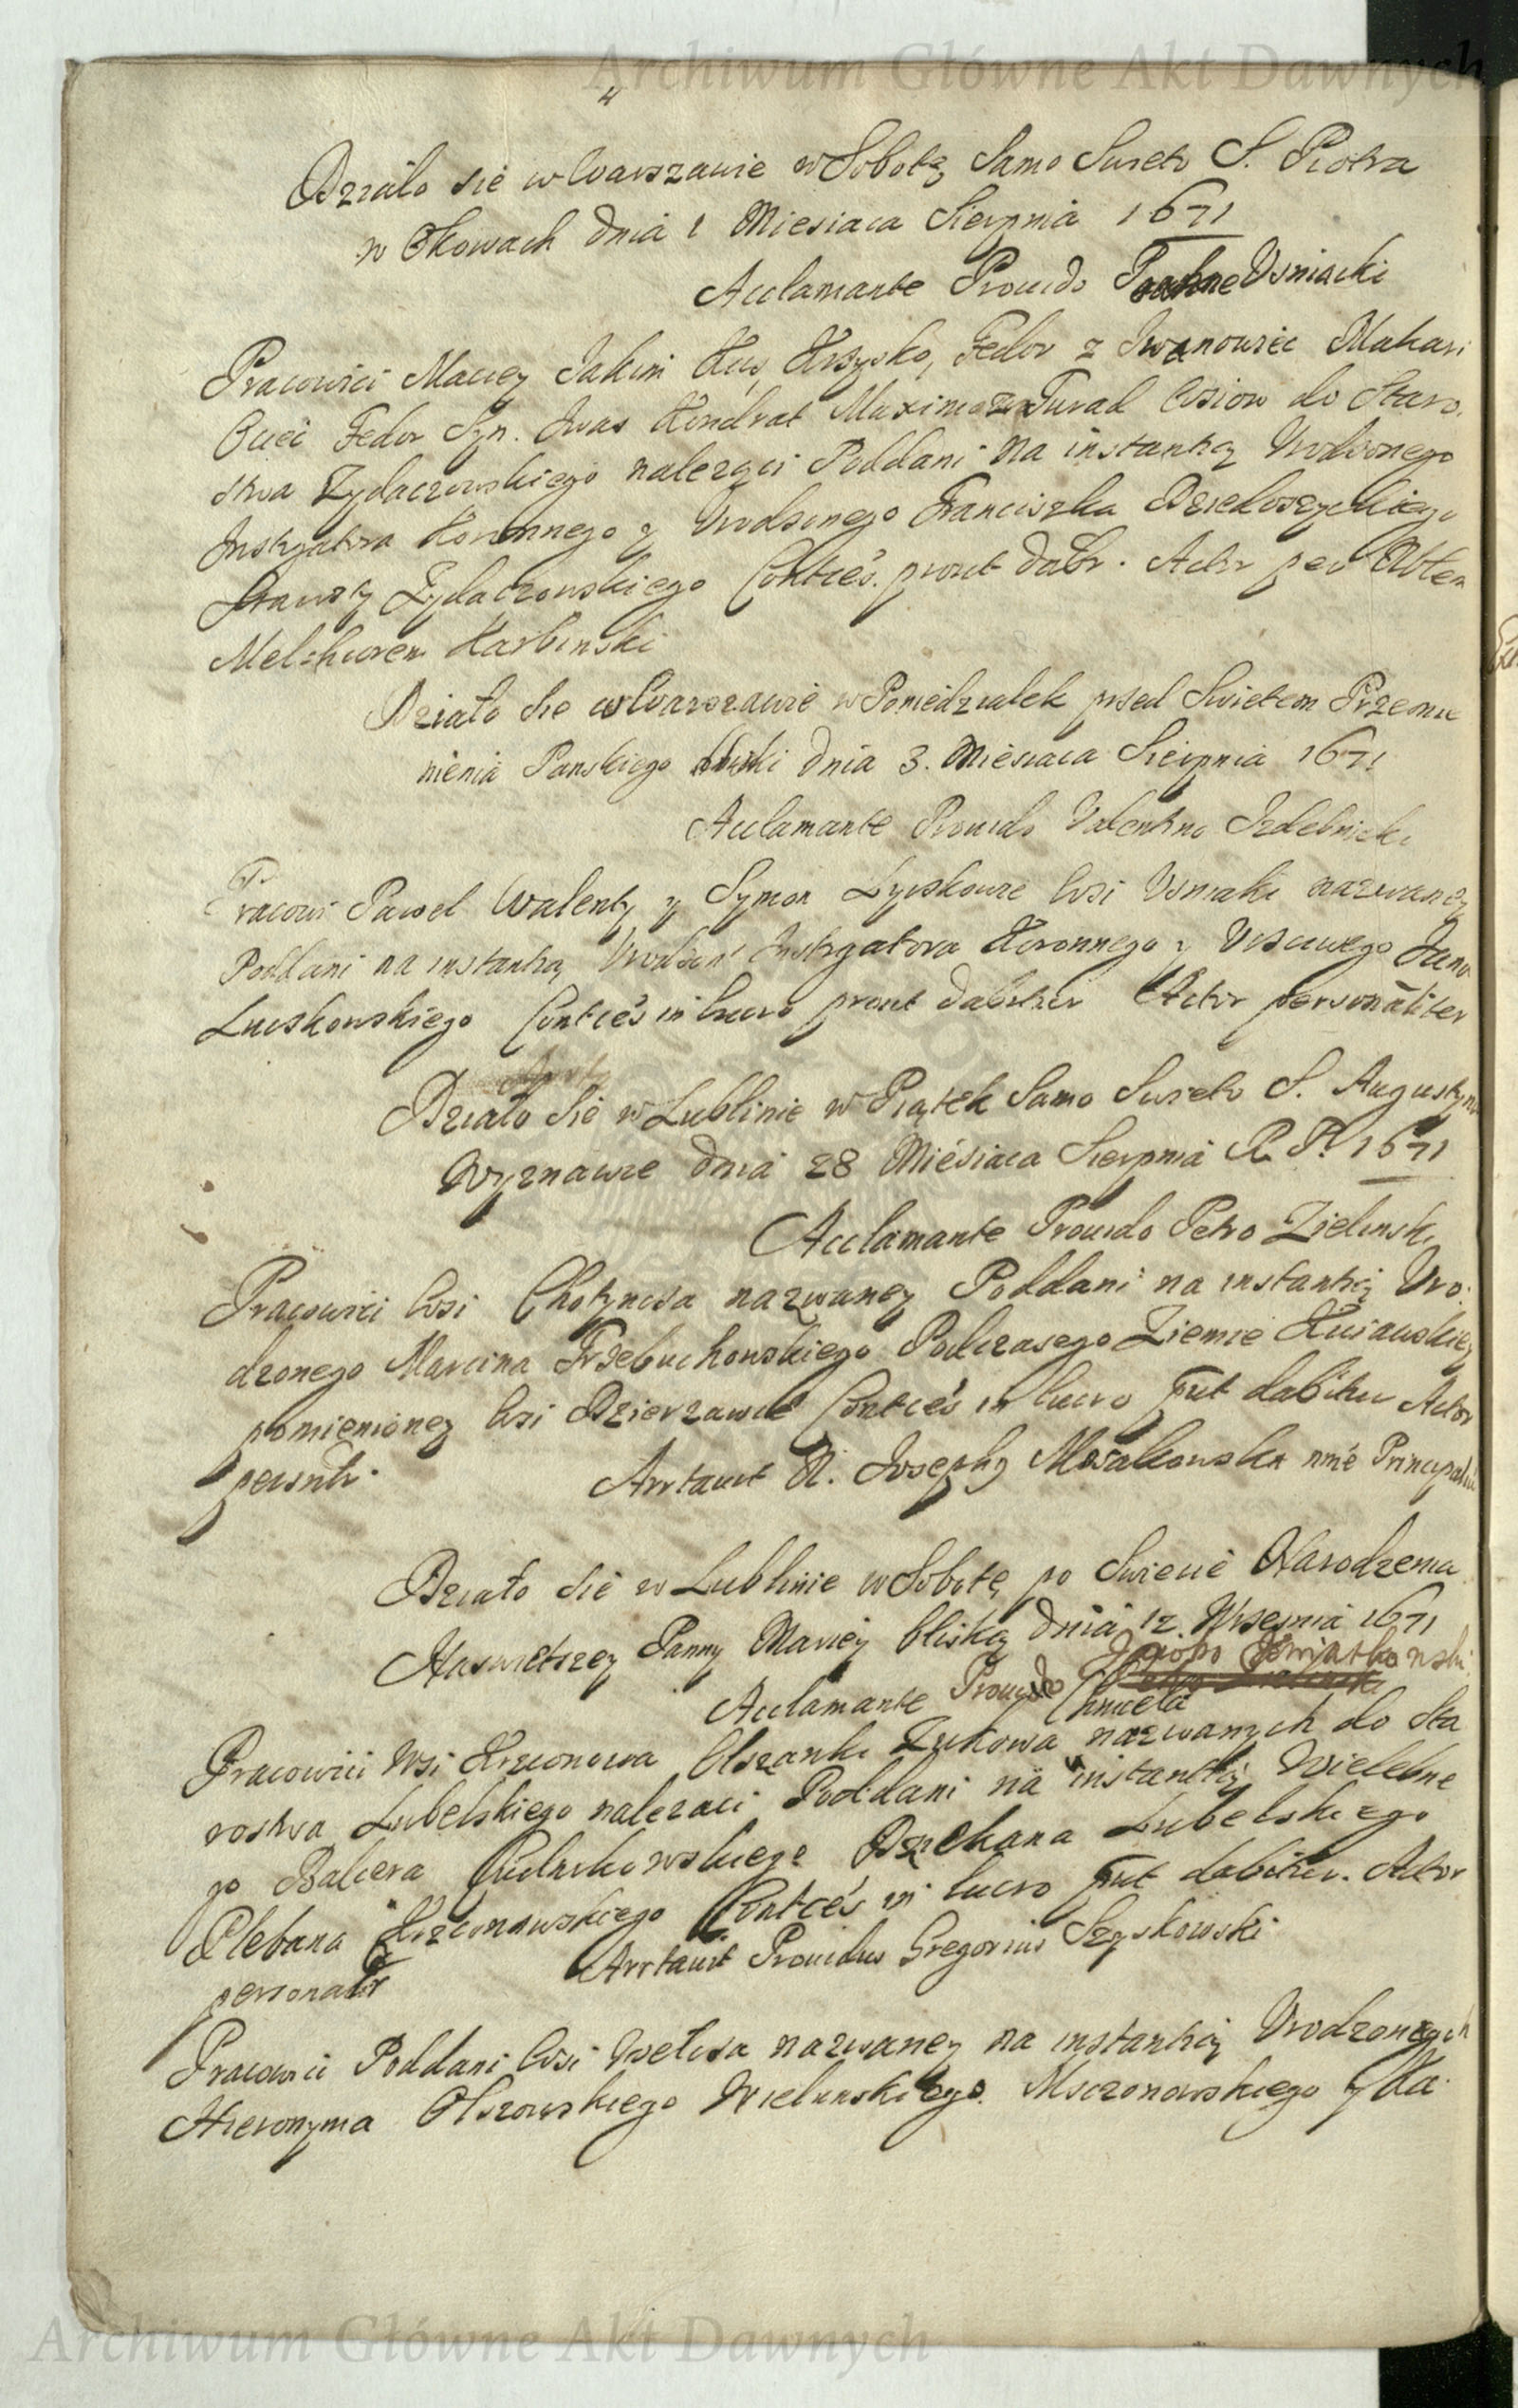 Archiwum Główne Akt Dawnych
4
Działo się w Warszawie w Sobotę Samo Swieto S. Piotra
w Okowach dnia 1 Miesiaca Sierpnia 1671
Acclamante Provido Vsniacki
Pracowici Maciey Jakim Hus Hrsysko, Fedor z Iwanowiec Makari
Fedor Syn. Iwas Kondrat Maxim z Turad Wsiow do Staro.
stwa Zydaczowskiego należąci Poddani na instantią Vrodzonego
Instigatora Koronnego y Vrodzonego Franciszka Dzieduszyckiego
Starosty Zydaczowskiego Conties. prout dabr. Actor per Noblem
Melchiorem Karbinski
Działo sie w Warszawie w Poniedziałek przed Swietem Przemie
nienia Panskiego bliski dnia 3. Miesiaca Sierpnia 1671
Acclamante Provido Valentino Izdebnicki
Pracowi Paweł Walenty y Symon Lyiskowie Wsi Vsniaki nazwaney
Poddani na instantią Vrodzon Instigatora Koronnego y Vrsciwego Jana
Luiskowskiego Conties in lucro prout dabitur Actor personaliter
Działo Sie w Lublinie w Piątek Samo Swieto S. Augustyna
Wyznawce dnia 28 Miesiaca Sierpnia R. P. 1671
Acclamante Provido Petro Zielinski
Pracowici Wsi Chotyncza nazwaney Poddani na instantią Vro.
dzonego Marcina Trzebuchowskiego Podczasego Ziemie Kuiawskiey
pomienioney Wsi Dzierzawce Conties in lucro put dabitur Actor
personlr. Arrtavit N. Josephy Mosakowska nme Principalu
Działo sie w Lublinie w Sobotę po Swiecie Narodzenia
Naswietszey Panny Mariey bliską dnia 12. Wrzesnia 1671
Acclamante Provido Jacobo Kwiatkowski
Chmiela
Pracowici Wsi Krzconowa Olszanki Zukowa nazwanych do Sta
rostwa Lubelskiego należaci Poddani na instantią Wielebne
go Balcera Dziekana Lubelskiego
Plebana Krzconowskiego Conties in lucro put dabitur. Actor
personalr Arrtavit Providus Gregorius Szyskowski
Pracowici Poddani Wsi nazwaney na instantią Vrodzonych
Hieronyma Olszowskiego Wielunskiego. Msczonowskiego y Ka
Archiwum Główne Akt Dawnych